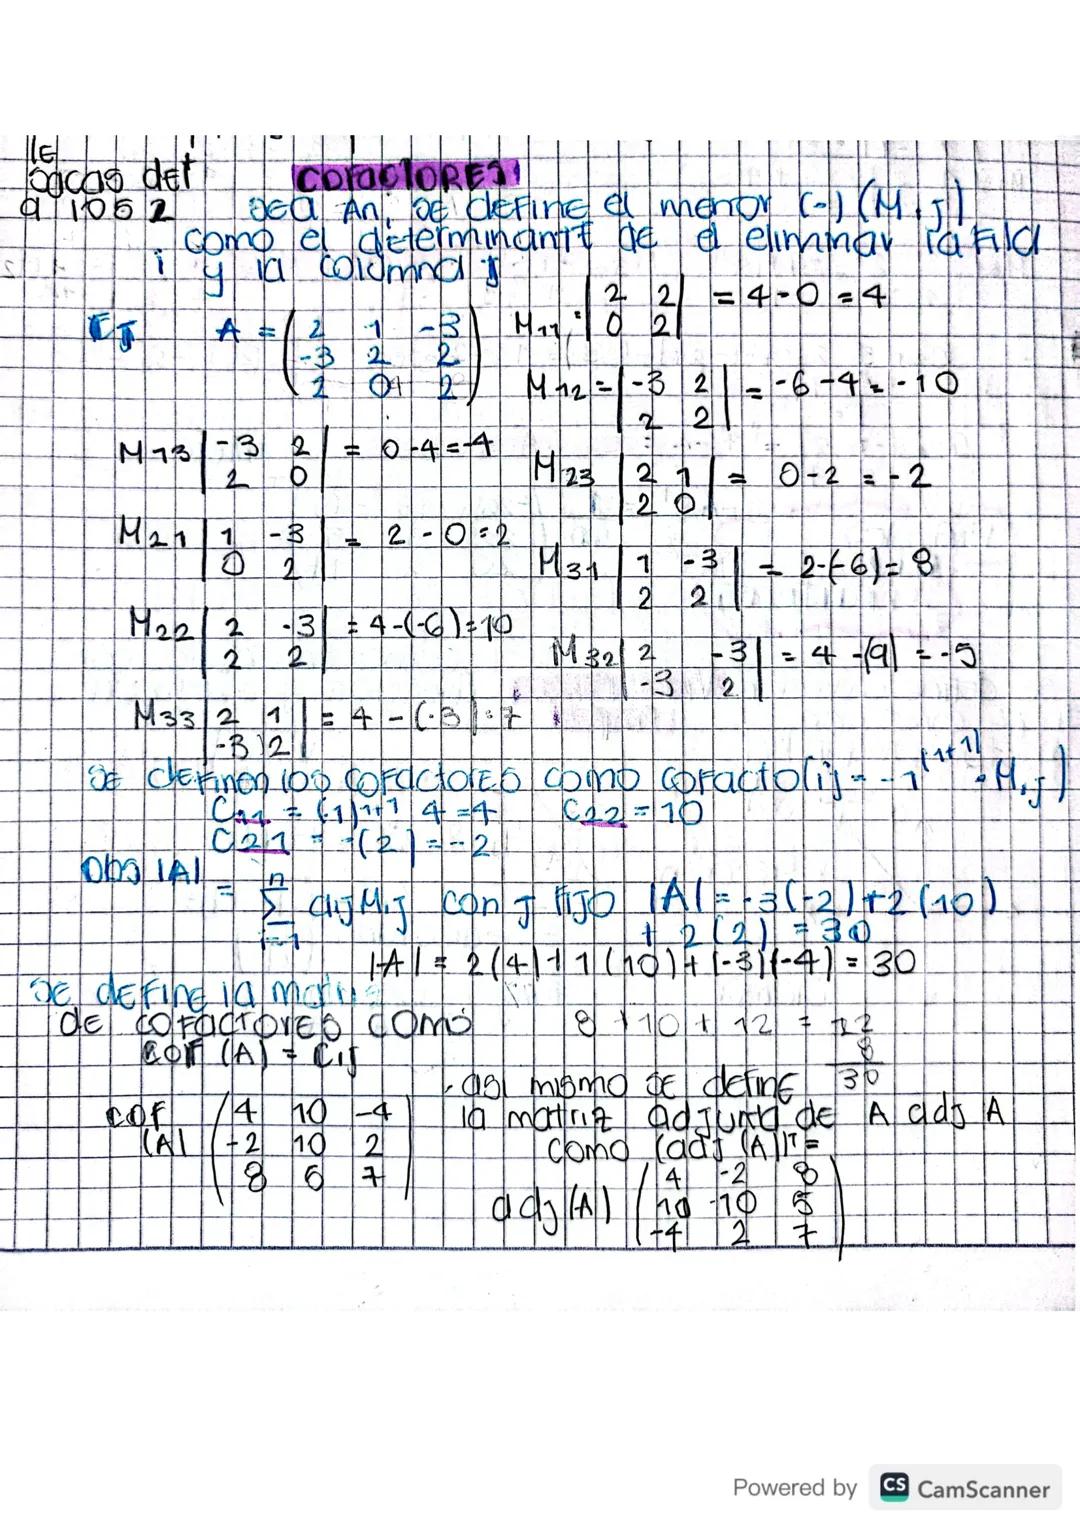 le
sacas det
a los 2
COFACTORES
sea An, se define el menor (-) (Mij)
como el determinante de el eliminar la fila
i y la columna j
Ej A = ( 2 1 -3
-3 2 2
2 0 2 )
M11 = | 2 2
0 2 | = 4-0 = 4
M12 = | -3 2
2 2 | = -6-4 = -10
M13 | -3 2
2 0 | = 0-4=-4
M23 | 2 1
2 0 | = 0-2 = -2
M21 | 1 -3
0 2 | = 2-0=2
M31 | 1 -3
2 2 | = 2-(-6)= 8
M22 | 2 -3
2 2 | = 4-(-6)=10
M32 | 2 -3
-3 2 | = 4-(9) = -5
M33 | 2 1
-3 2 | = 4-(-3)=7
se definen los cofactores como cofacto(ij = -1^(1+1) · Mij)
C11 = (-1)^1+1 4 =4 C22 = 10
C21 = -(2) = -2
Obs |A|
= n Σ i=1 aij Mij con j fijo |A| = -3(-2)+2(10)
+ 2(2) = 30
|A| = 2(4)+1(10)+(-3)(-4) = 30
se define la
de cofactores como 8+10+12 = 22
cof (A) = Cij 8
30
· asi mismo se define
la matriz adjunta de A adj A
como (adj (A))T =
cof
(A) ( 4 10 -4
-2 10 2
8 6 7 )
adj (A) ( 4 -2 8
10 -10 5
-4 2 7 )
Powered by CS CamScanner